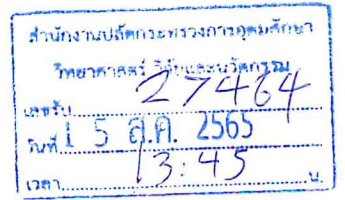 สำนักงานปลัดกระทรวงการอุดมศึกษา
วิทยาศาสตร์ วิจัยและนวัตกรรม
เลขรับ 27464
วันที่ 15 ส.ค. 2565
เวลา 13:45 น.